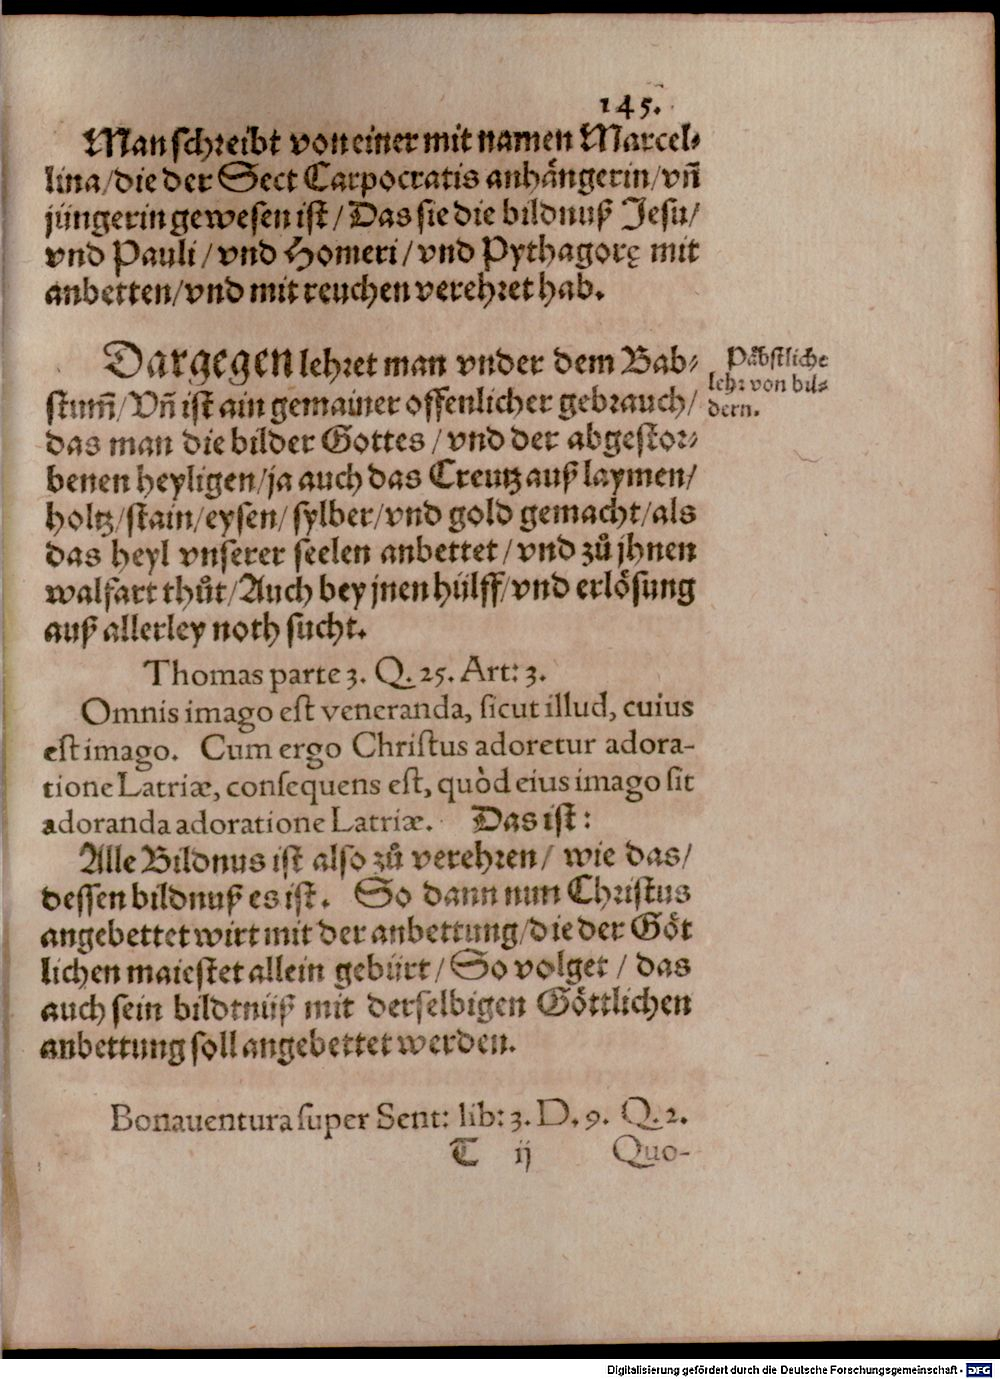 145.
Man schreibt von einer mit namen Marcel⸗
lina/die der Sect Carpocratis anhängerin/vñ
jüngerin gewesen ist/Das sie die bildnuß Jesu/
vnd Pauli/vnd Homeri/vnd Pythagorę mit
anbetten/vnd mit reuchen verehret hab.
Dargegen lehret man vnder dem Bab⸗
stum̃/Vñ ist ain gemainer offenlicher gebrauch/
das man die bilder Gottes/vnd der abgestor⸗
benen heyligen/ja auch das Creutz auß laymen/
holtz/stain/eysen/sylber/vnd gold gemacht/als
das heyl vnserer seelen anbettet/vnd zů jhnen
walfart thůt/Auch bey jnen hülff/vnd erlösung
auß allerley noth sucht.
Päbstliche
lehr von bil⸗
dern.
Thomas parte 3. Q. 25. Art: 3.
Omnis imago est veneranda, sicut illud, cuius
est imago. Cum ergo Christus adoretur adora-
tione Latriæ, consequens est, quòd eius imago sit
adoranda adoratione Latriæ. Das ist:
Alle Bildnus ist also zů verehren/ wie das/
dessen bildnuß es ist. So dann nun Christus
angebettet wirt mit der anbettung/die der Göt
lichen maiestet allein gebürt/So volget/das
auch sein bildtnüß mit derselbigen Göttlichen
anbettung soll angebettet werden.
Bonauentura super Sent: lib: 3. D. 9. Q. 2.
T ij Quo-
Digitalisierung gefördert durch die Deutsche Forschungsgemeinschaft - DFG